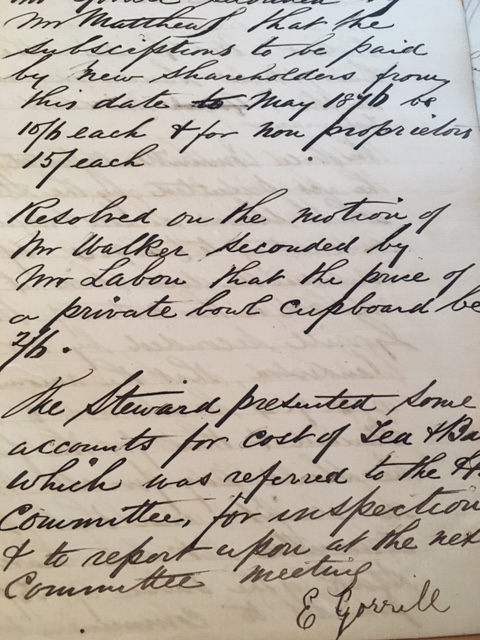 Mr Gorrill seconded by
Mr Matthews that the
subscriptions to be paid
by new shareholders from
this date to May 1876 be
10/6 each & for non proprietors
15/ each
Resolved on the motion of
Mr Walker seconded by
Mr Labon that the price of
a private bowl cupboard be
2/6.
The Steward presented some
accounts for cost of Tea &
which was referred to the
Committee, for inspection
& to report upon at the nex
Committee meeting
E Gorrill